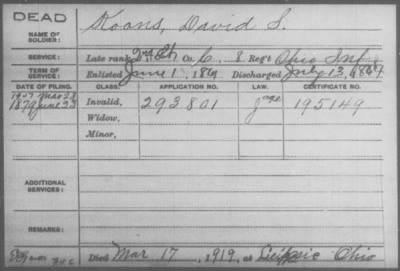 DEAD
NAME OF SOLDIER: Koons, David S.
SERVICE: Late rank, 2nd Lt Co. C, 8 Reg't Ohio Inf.
TERM OF SERVICE: Enlisted June 1, 1861 Discharged July 13, 1864
DATE OF FILING. CLASS. APPLICATION NO. LAW. CERTIFICATE NO.
1907 Mar 28
1879 June 23 Invalid, 293801 195149
Widow,
Minor,
ADDITIONAL SERVICES:
REMARKS:
Died Mar 17, 1919, at Leipsic Ohio